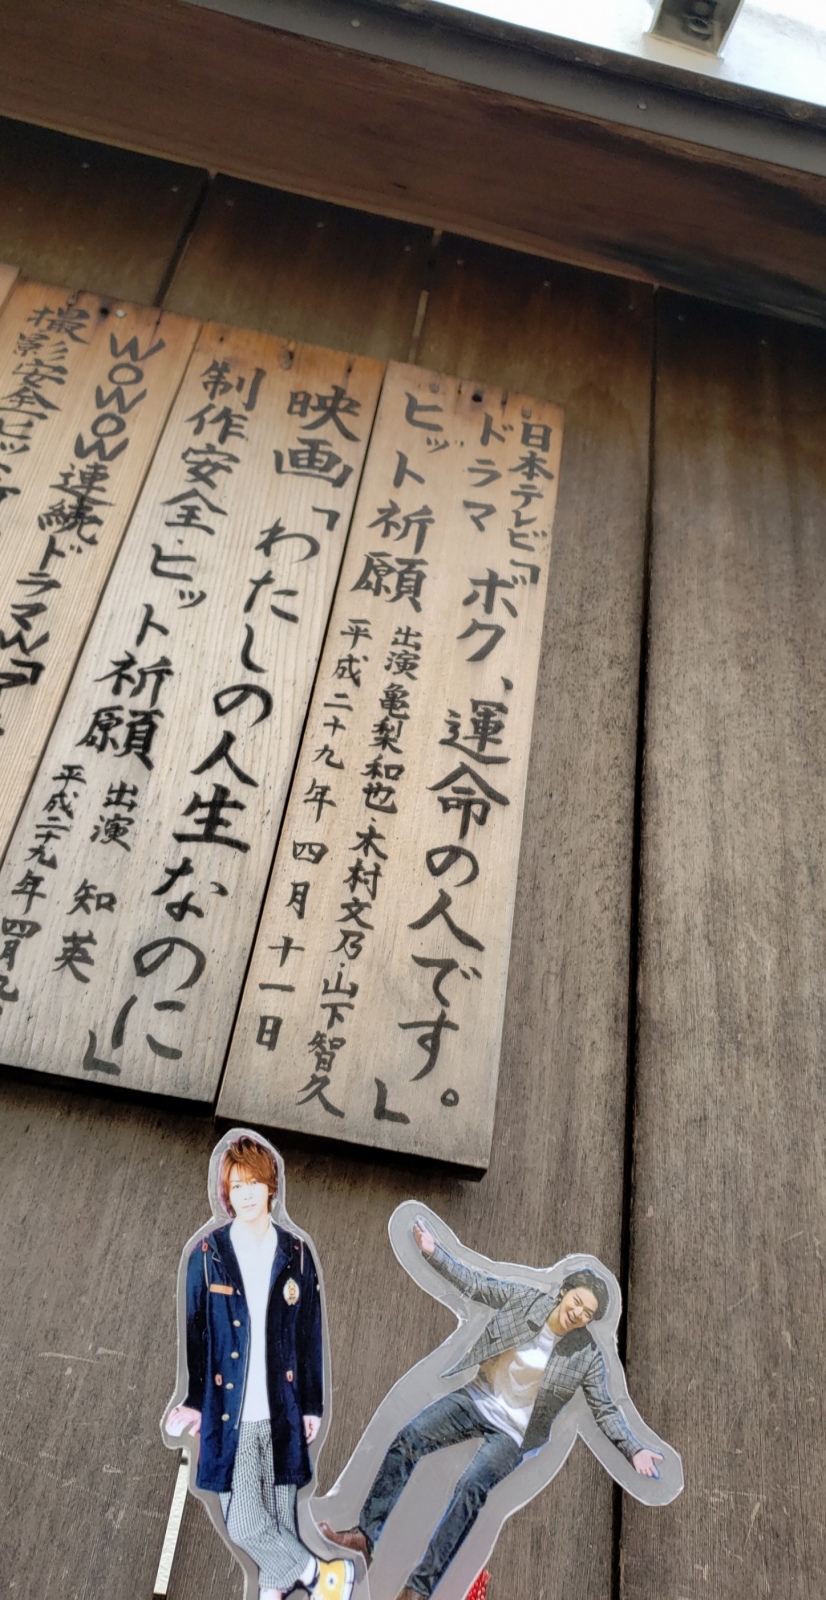 日本テレビ「
ドラマ ボク、運命の人です。」
ヒット祈願
出演 亀梨和也・木村文乃・山下智久
平成二十九年四月十一日
映画「わたしの人生なのに」
制作安全・ヒット祈願
出演 知英
平成二十九年四月
WOWOW連続ドラマW「
撮影安全・ヒット